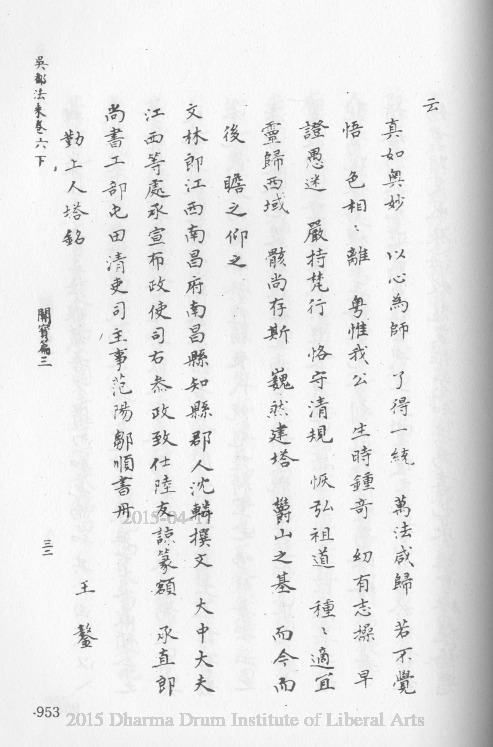 云
真如奧妙 以心為師 了得一統 萬法咸歸 若不覺
悟 色相〻離 粵惟我公 生時鍾奇 幼有志操 早
證愚迷 嚴持梵行 恪守清規 恢弘祖道 種〻適宜
靈歸西域 骸尚存斯 巍然建塔 欝山之基 而今而
後 瞻之仰之
文林郎江西南昌府南昌縣知縣郡人沈轔撰文 大中大夫
江西等處承宣布政使司右叅政致仕陸友諒篆額 承直郎
尚書工部屯田清吏司主事范陽鄒順書冊
勤上人塔銘 王鏊
吳都法乘卷六下 開寶篇三 三二
2015-04-17
-953
2015 Dharma Drum Institute of Liberal Arts